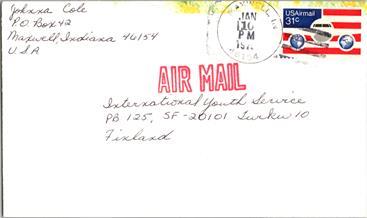 Johnna Cole
P.O Box 42
Maxwell, Indiana 46154
U.S.A
MAXWELL, IN
JAN
10
PM
197
46154
USAirmail
31c
AIR MAIL
International Youth Service
PB 125, SF-20101 Turku 10
Finland